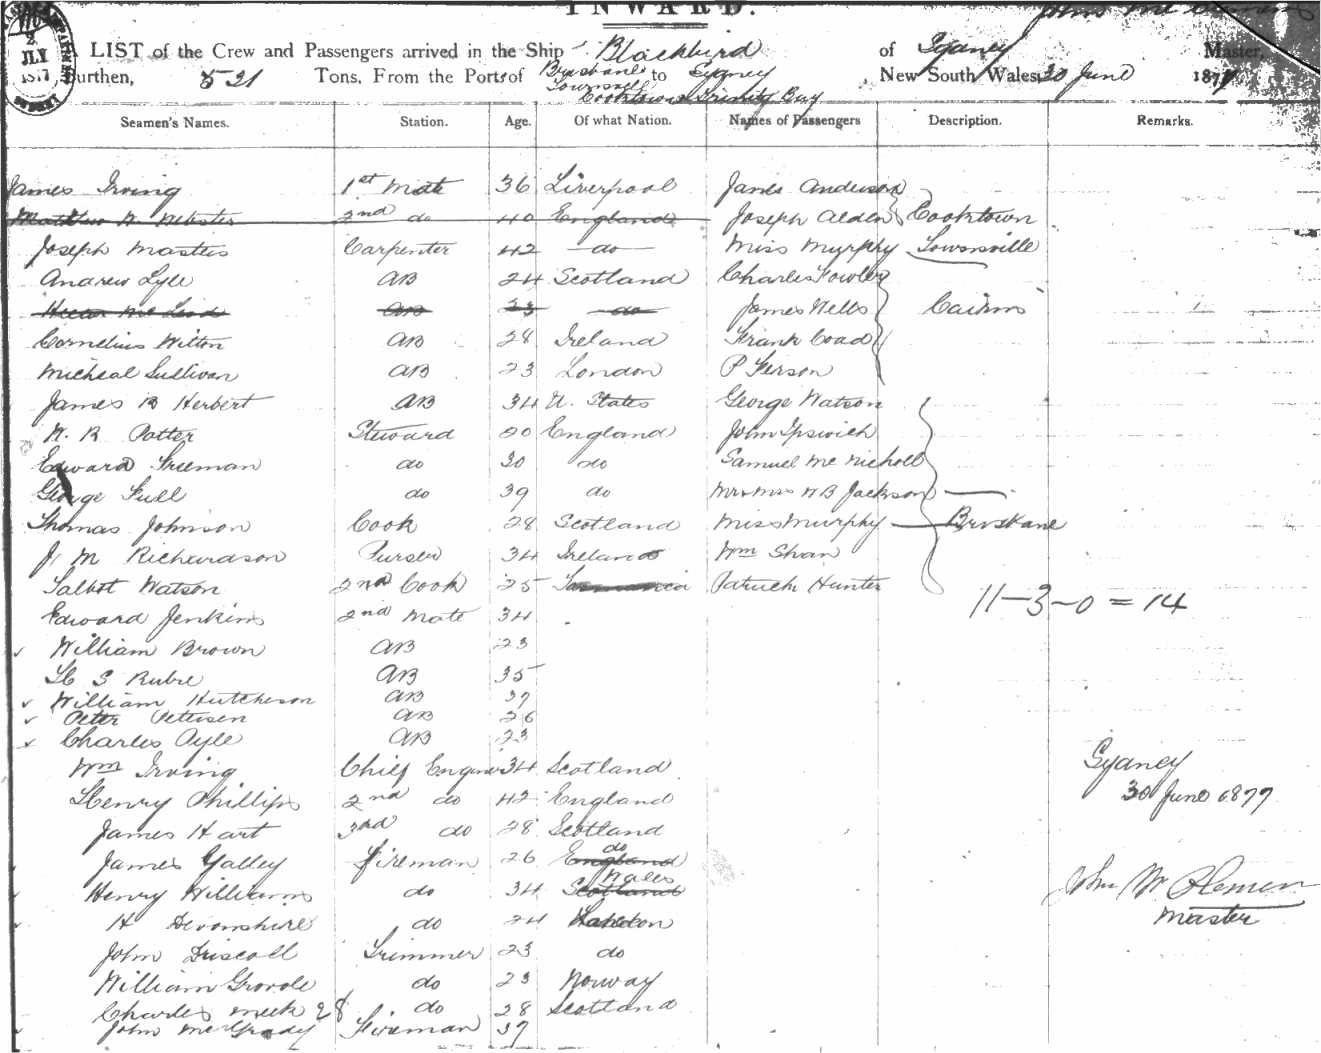 INWARD.
LIST of the Crew and Passengers arrived in the Ship Blackbird of Sydney Master,
Burthen, 521 Tons, From the Port of Brisbane to Sydney New South Wales, 30 June 1877
Townsville
Cooktown Trinity Bay
Seamen's Names. Station. Age. Of what Nation. Names of Passengers Description. Remarks.
James Irving 1st Mate 36 Liverpool James Anderson
Matthew W Webster 2nd do 40 England Joseph Alden Cooktown
Joseph Masters Carpenter 42 do Miss Murphy Townsville
Andrew Lyle AB 24 Scotland Charles Fowler
AB 23 do James Wells Cairns
Cornelius Witton AB 28 Ireland Frank Coad
Micheal Sullivan AB 23 London P Ferson
James B Herbert AB 34 U. States George Watson
W. R Potter Steward 20 England John Ipswich
Edward Freeman do 30 do Samuel Mc Nicholl
George Full do 39 do Mr & Mrs W B Jackson
Thomas Johnson Cook 28 Scotland Miss Murphy Brisbane
J. M Richardson Purser 34 Ireland Wm Shan
Talbot Watson 2nd Cook 25 Tasmania Patrick Hunter
11-3-0 = 14
Edward Jenkins 2nd Mate 34
William Brown AB 23
S AB 35
William Hutcheson AB 37
Peter Petersen AB 26
Charles Ayle AB 23
Wm Irving Chief Engineer 34 Scotland Sydney
Henry Phillips 2nd do 42 England 30 June 1877
James Hart 3rd do 28 Scotland
James Galley Fireman 26 England do
Henry Williams do 34 Scotland Wales John W Master
H Devonshire do 24 London
John Driscoll Trimmer 23 do
William do 23 Norway
Charles Meek 28 do 28 Scotland
John McGrady Fireman 37